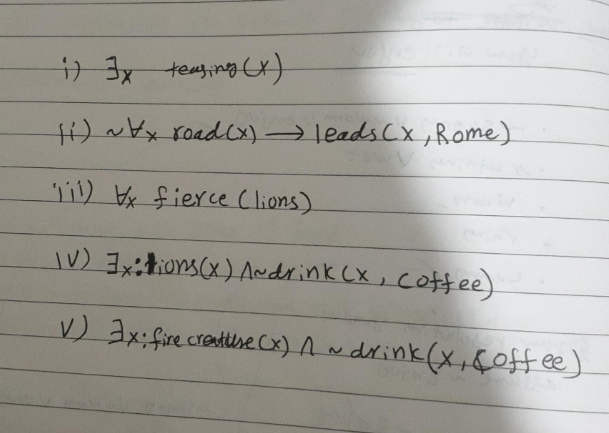 i) ∃x teasing(x)
ii) ~∀x road(x) → leads(x, Rome)
iii) ∀x fierce (lions)
iv) ∃x: lions(x) ∧ ~drink(x, coffee)
v) ∃x: fire creature(x) ∧ ~ drink(x, coffee)